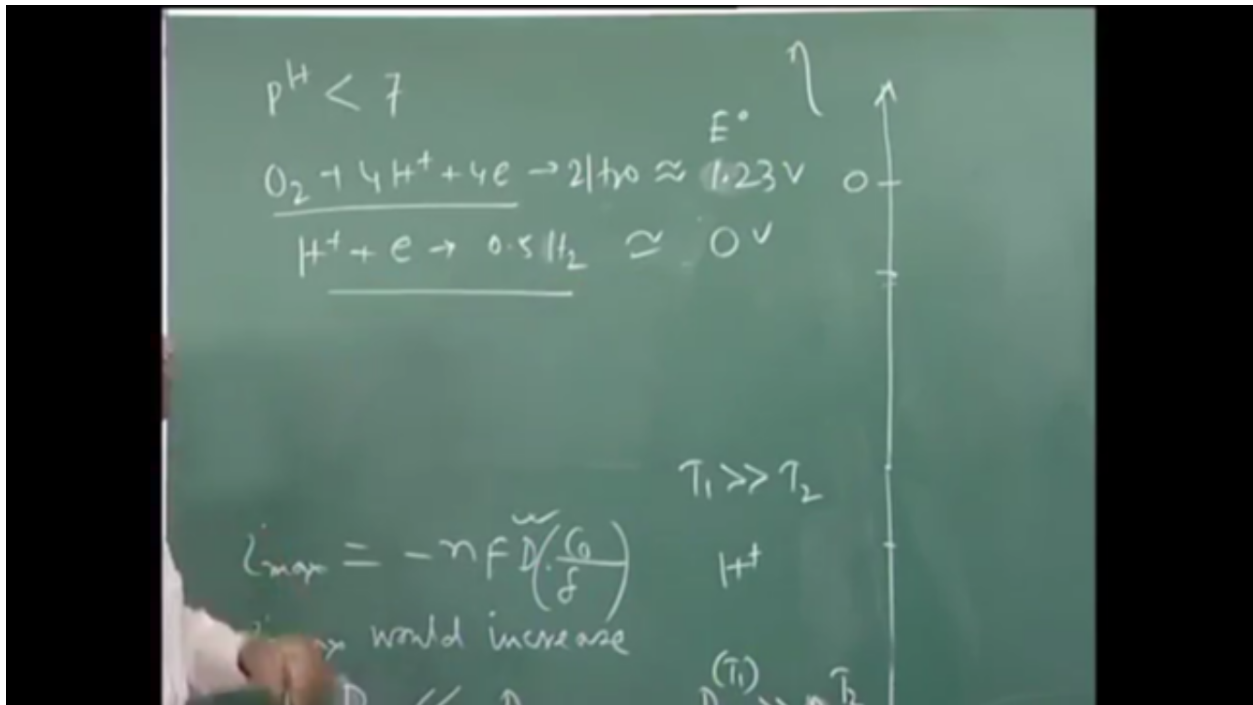 pH < 7
η
E°
O₂ + 4H⁺ + 4e → 2H₂O ≈ 1.23 V
0
H⁺ + e → 0.5 H₂ ≃ 0 V
T₁ >> T₂
i_max = -nFD(C₀/δ)
H⁺
would increase
(T₁)
T₂
D << D
D >>